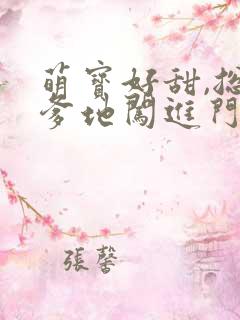 萌寶好甜,總
爹地闖進門
張馨